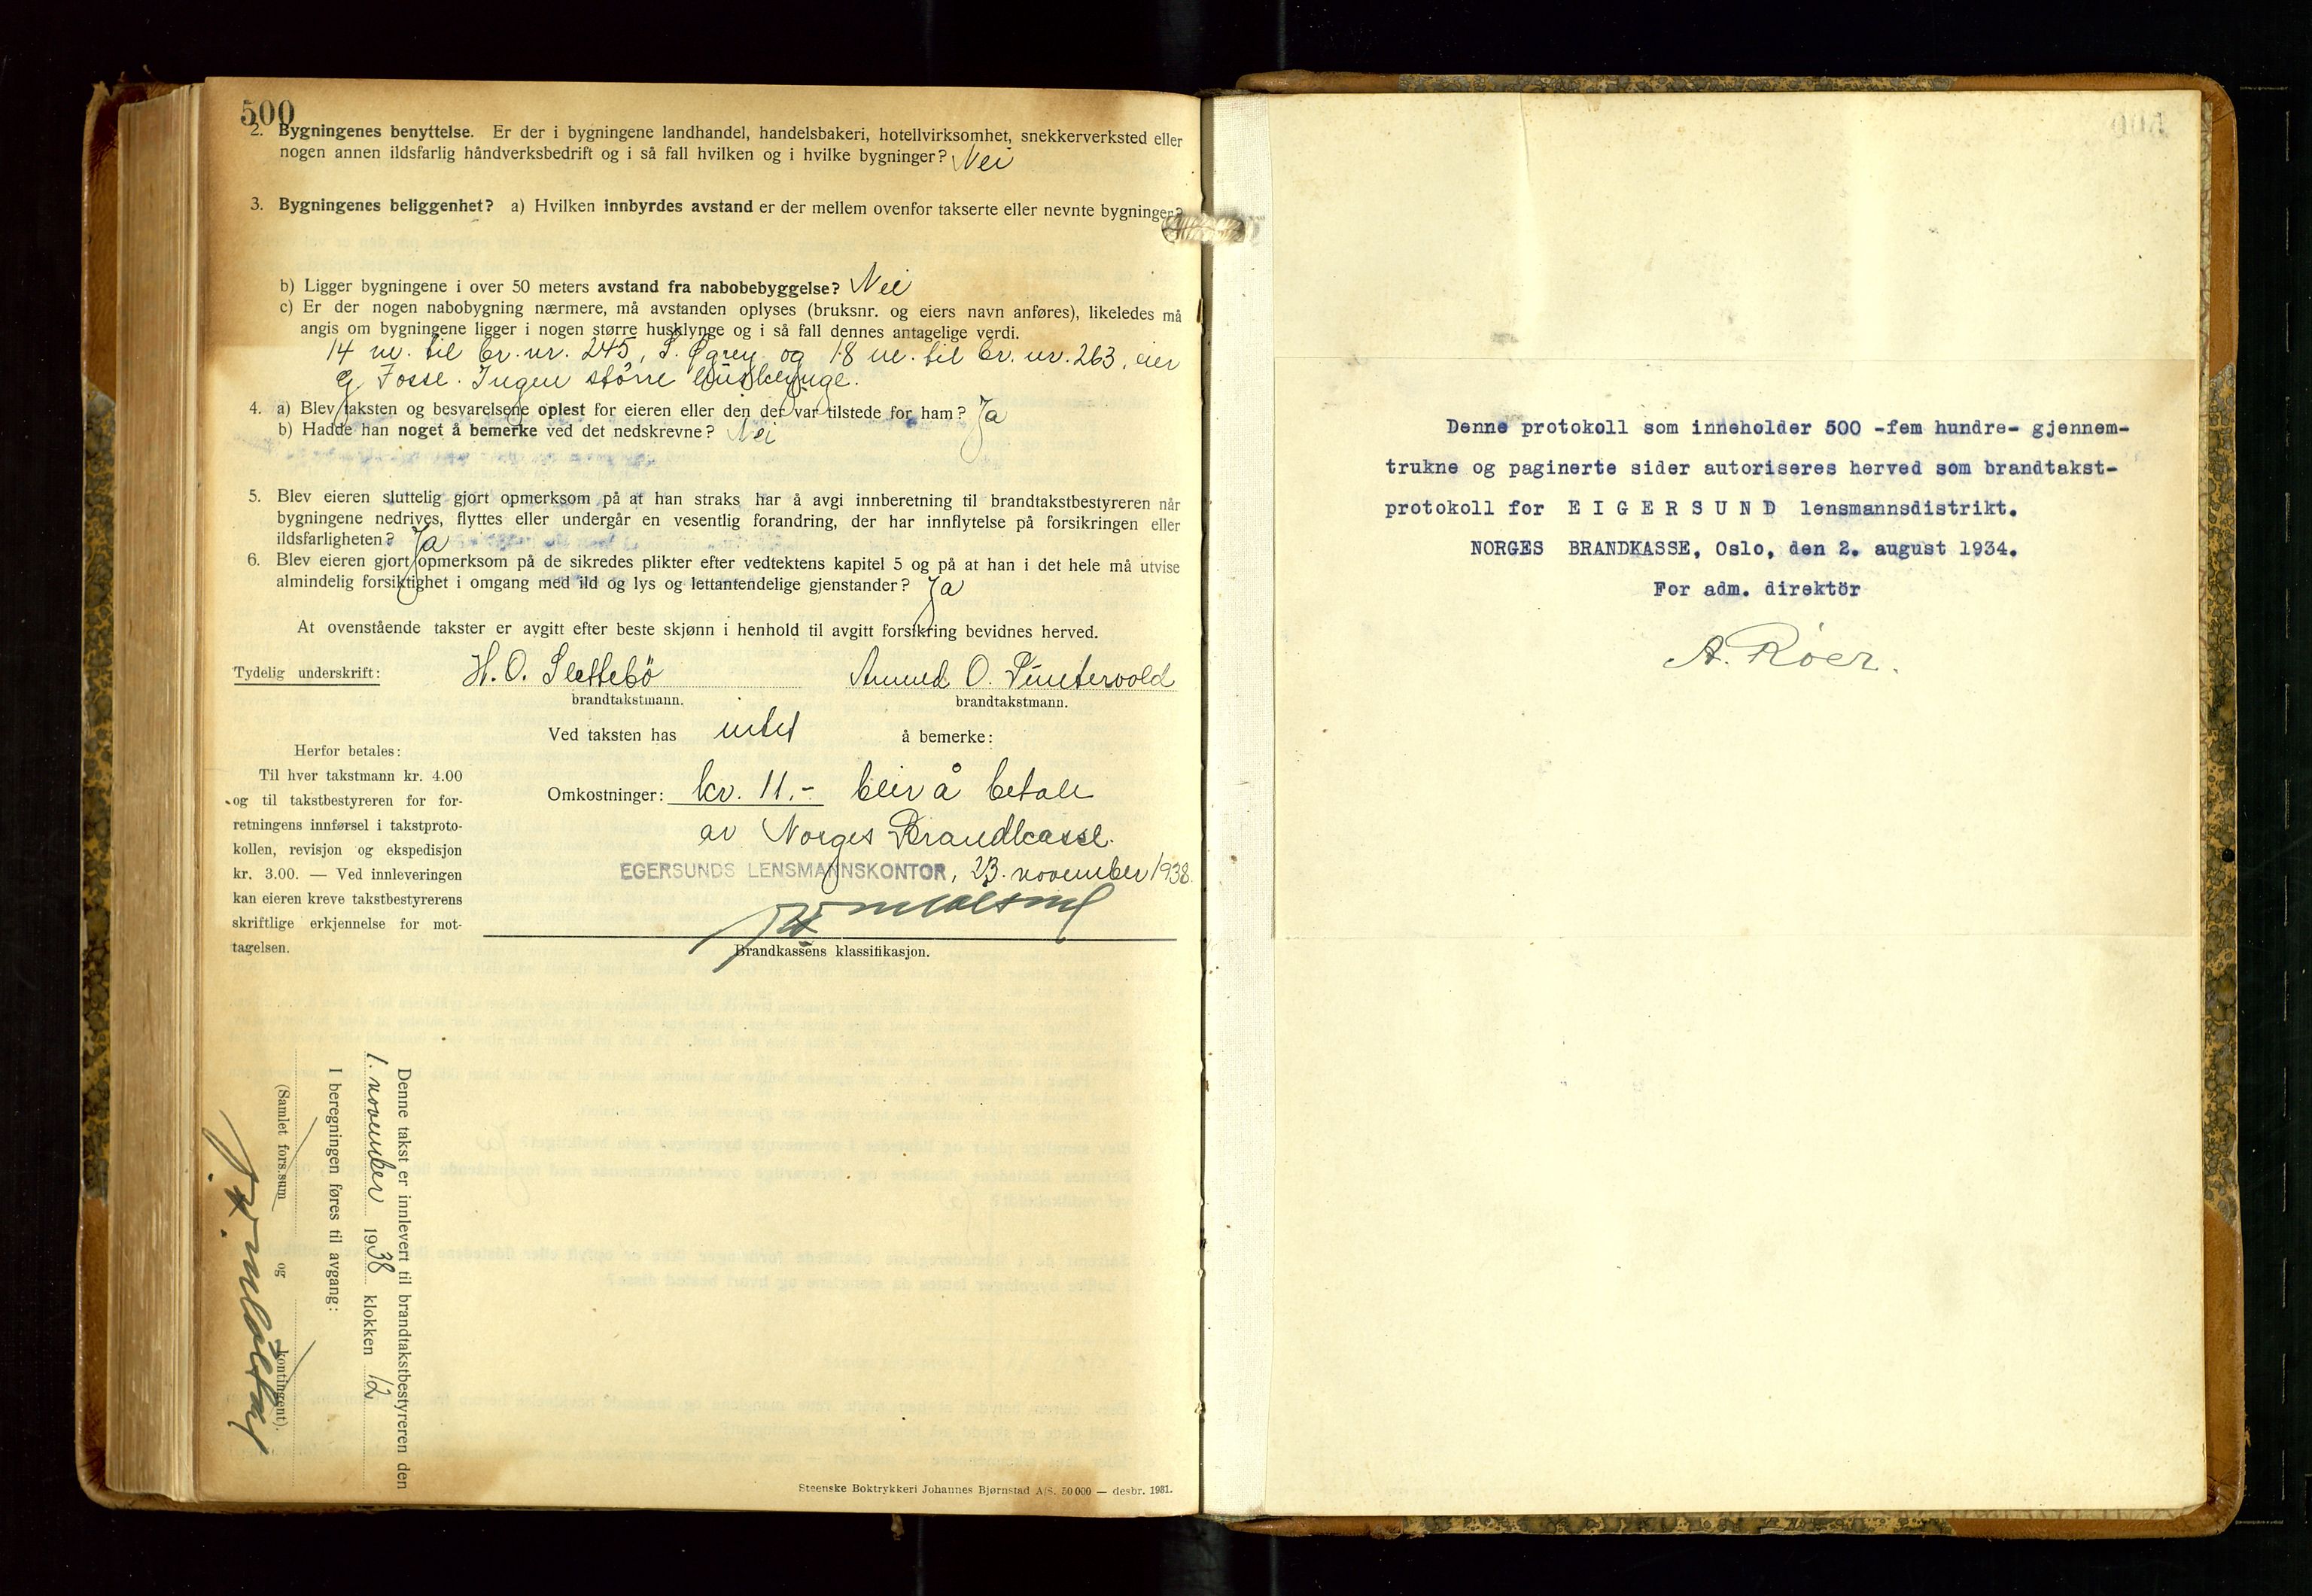 500
2. Bygningenes benyttelse. Er der i bygningene landhandel, handelsbakeri, hotellvirksomhet, snekkerverksted eller
nogen annen ildsfarlig håndverksbedrift og i så fall hvilken og i hvilke bygninger? Nei
3. Bygningenes beliggenhet? a) Hvilken innbyrdes avstand er der mellem ovenfor takserte eller nevnte bygninger?
b) Ligger bygningene i over 50 meters avstand fra nabobebyggelse? Nei
c) Er der nogen nabobygning nærmere, må avstanden oplyses (bruksnr. og eiers navn anføres), likeledes må
angis om bygningene ligger i nogen større husklynge og i så fall dennes antagelige verdi.
14 m. til br. nr. 245, S. Øgrey og 18 m. til br. nr. 263, eier
G. Fosse. Ingen større husklynge.
4. a) Blev taksten og besvarelsene oplest for eieren eller den der var tilstede for ham? Ja
b) Hadde han noget å bemerke ved det nedskrevne? Nei
5. Blev eieren sluttelig gjort opmerksom på at han straks har å avgi innberetning til brandtakstbestyreren når
bygningene nedrives, flyttes eller undergår en vesentlig forandring, der har innflytelse på forsikringen eller
ildsfarligheten? Ja
6. Blev eieren gjort opmerksom på de sikredes plikter efter vedtektens kapitel 5 og på at han i det hele må utvise
almindelig forsiktighet i omgang med ild og lys og lettantendelige gjenstander? Ja
At ovenstående takster er avgitt efter beste skjønn i henhold til avgitt forsikring bevidnes herved.
Tydelig underskrift: H. O. Slettebö Amund O. Puntervold
brandtakstmann. brandtakstmann.
Ved taksten has intet å bemerke:
Herfor betales:
Til hver takstmann kr. 4.00
og til takstbestyreren for for-
retningens innførsel i takstproto-
kollen, revisjon og ekspedisjon
kr. 3.00. — Ved innleveringen
kan eieren kreve takstbestyrerens
skriftlige erkjennelse for mot-
tagelsen.
Omkostninger: kr. 11.- blir å betale
av Norges Brandkasse.
EGERSUNDS LENSMANNSKONTOR, 23. november 1938
Brandkassens klassifikasjon.
Denne takst er innlevert til brandtakstbestyreren den
1. november 1938 klokken 12
I beregningen føres til avgang:
(Samlet fors.sum og kontingent).
Steenske Boktrykkeri Johannes Bjørnstad A/S. 50 000 — desbr. 1931.
Denne protokoll som inneholder 500 -fem hundre- gjennem-
trukne og paginerte sider autoriseres herved som brandtakst-
protokoll for E I G E R S U N D lensmannsdistrikt.
NORGES BRANDKASSE, Oslo, den 2. august 1934.
For adm. direktör
A. Röer.